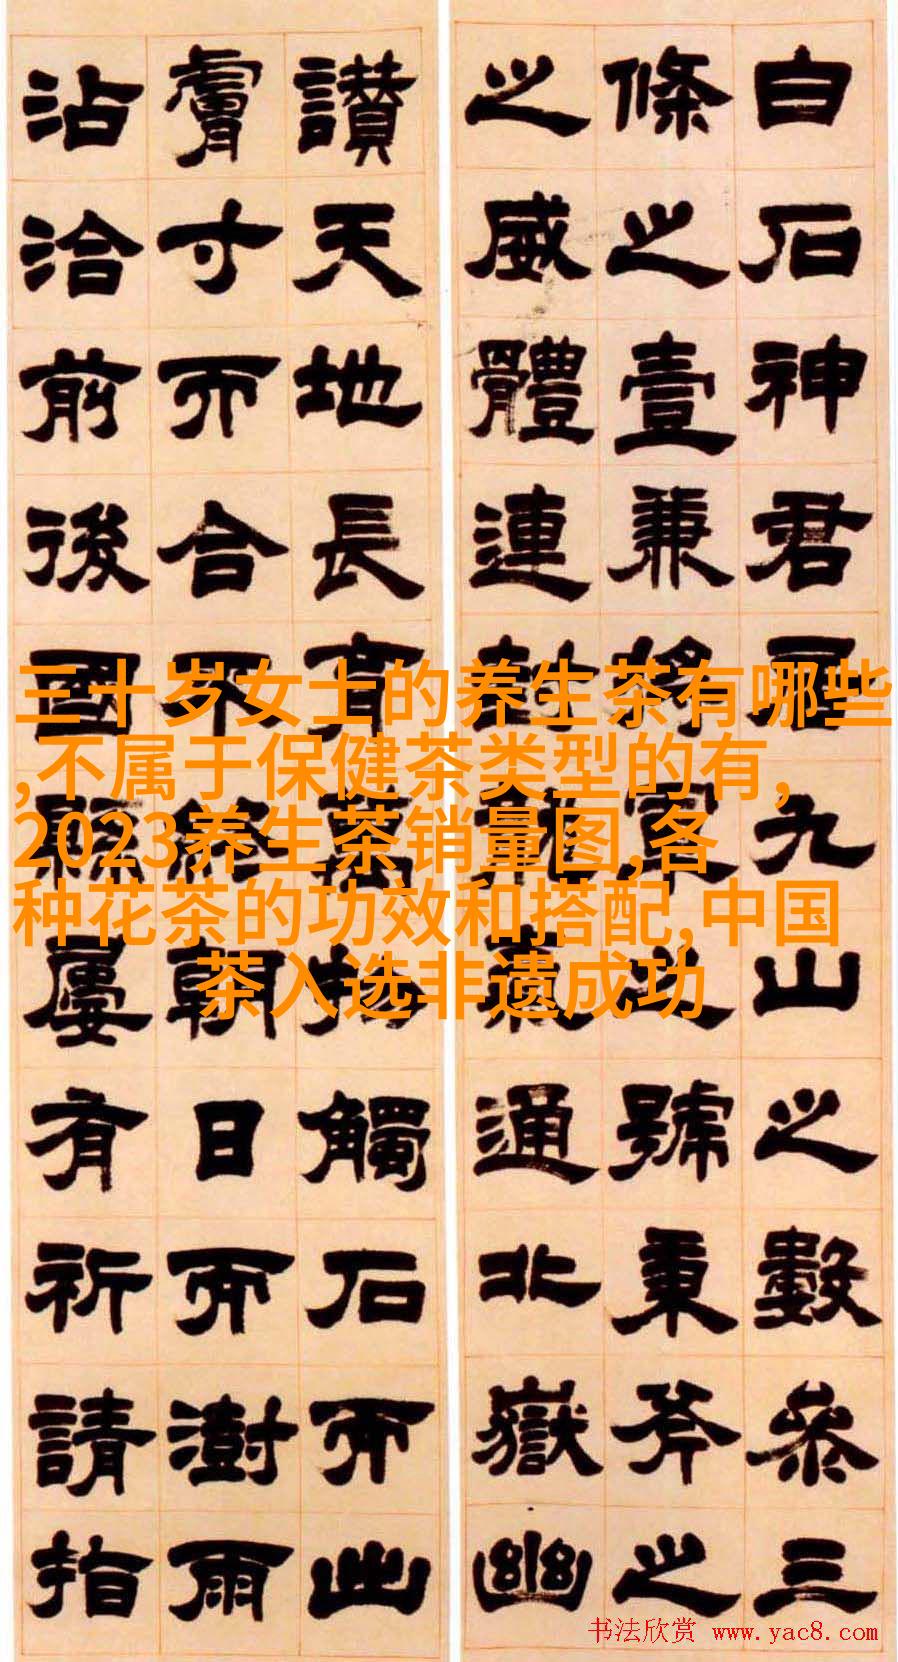 白石神君居九山之數參三
條之壹兼將軍之號秉斧之
之威體連封龍氣通北嶽幽
讚天地長育萬物觸石而出
膚寸而合不終朝日而澍雨
沾洽前後國縣屢有祈請指
三十岁女士的养生茶有哪些
,不属于保健茶类型的有,
2023养生茶销量图,各
种花茶的功效和搭配,中国
茶入选非遗成功
书法欣赏 www.yac8.com